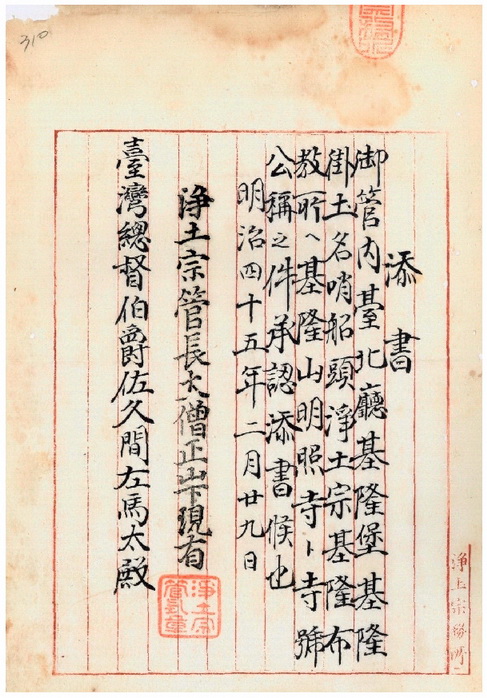 310
添書
御管內臺北廳基隆堡基隆
掛土名哨船頭淨土宗基隆布
教所ヘ基隆山明照寺ト寺號
公稱之件承認添書候也
明治四十五年二月廿九日
浄土宗管長大僧正山下現有
淨土宗管長章
臺灣總督伯爵佐久間左馬太殿
淨土宗務所